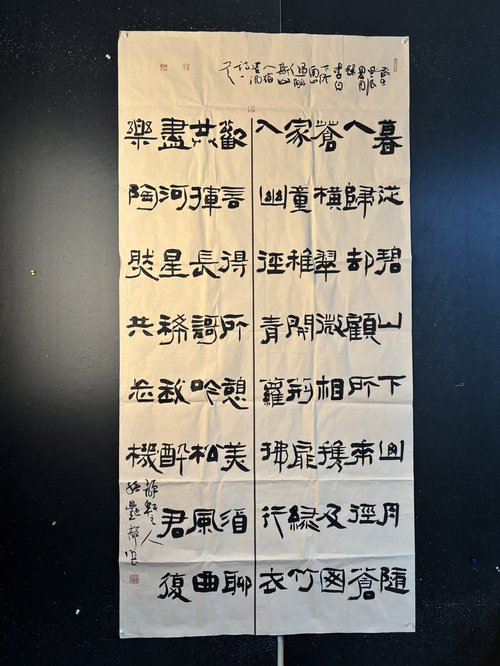 李白
下終
南山
過斛
斯山
人宿
置酒
詩一
暮從碧山下山月隨
人歸却顧所來徑蒼
蒼橫翠微相攜及田
家童稚開荊扉綠竹
入幽徑青蘿拂行衣
歡言得所憩美酒聊
共揮長謌吟松風曲
盡河星稀我醉君復
樂陶然共忘機